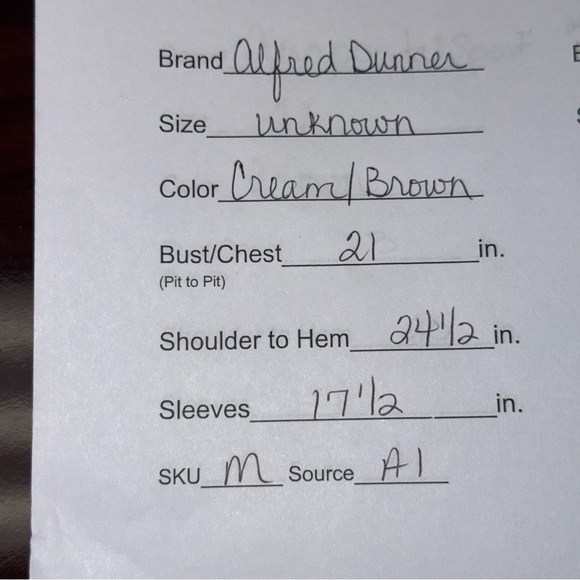 Brand Alfred Dunner
Size unknown
Color Cream/Brown
Bust/Chest 21 in.
(Pit to Pit)
Shoulder to Hem 24 1/2 in.
Sleeves 17 1/2 in.
SKU M Source A1